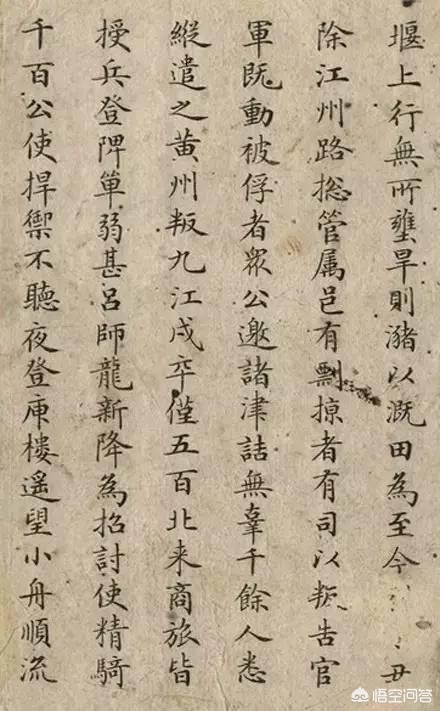 堰上行無所壅旱則瀦以溉田為至今丑
除江州路捴管属邑有剽掠者有司以叛告官
軍既動被俘者眾公邀諸津詰無辜千餘人悉
縱遣之黄州叛九江戍卒僅五百北来商旅皆
授兵登陴单弱甚吕師龍新降為招討使精騎
千百公使捍禦不聽夜登庾楼遥望小舟順流
悟空问答